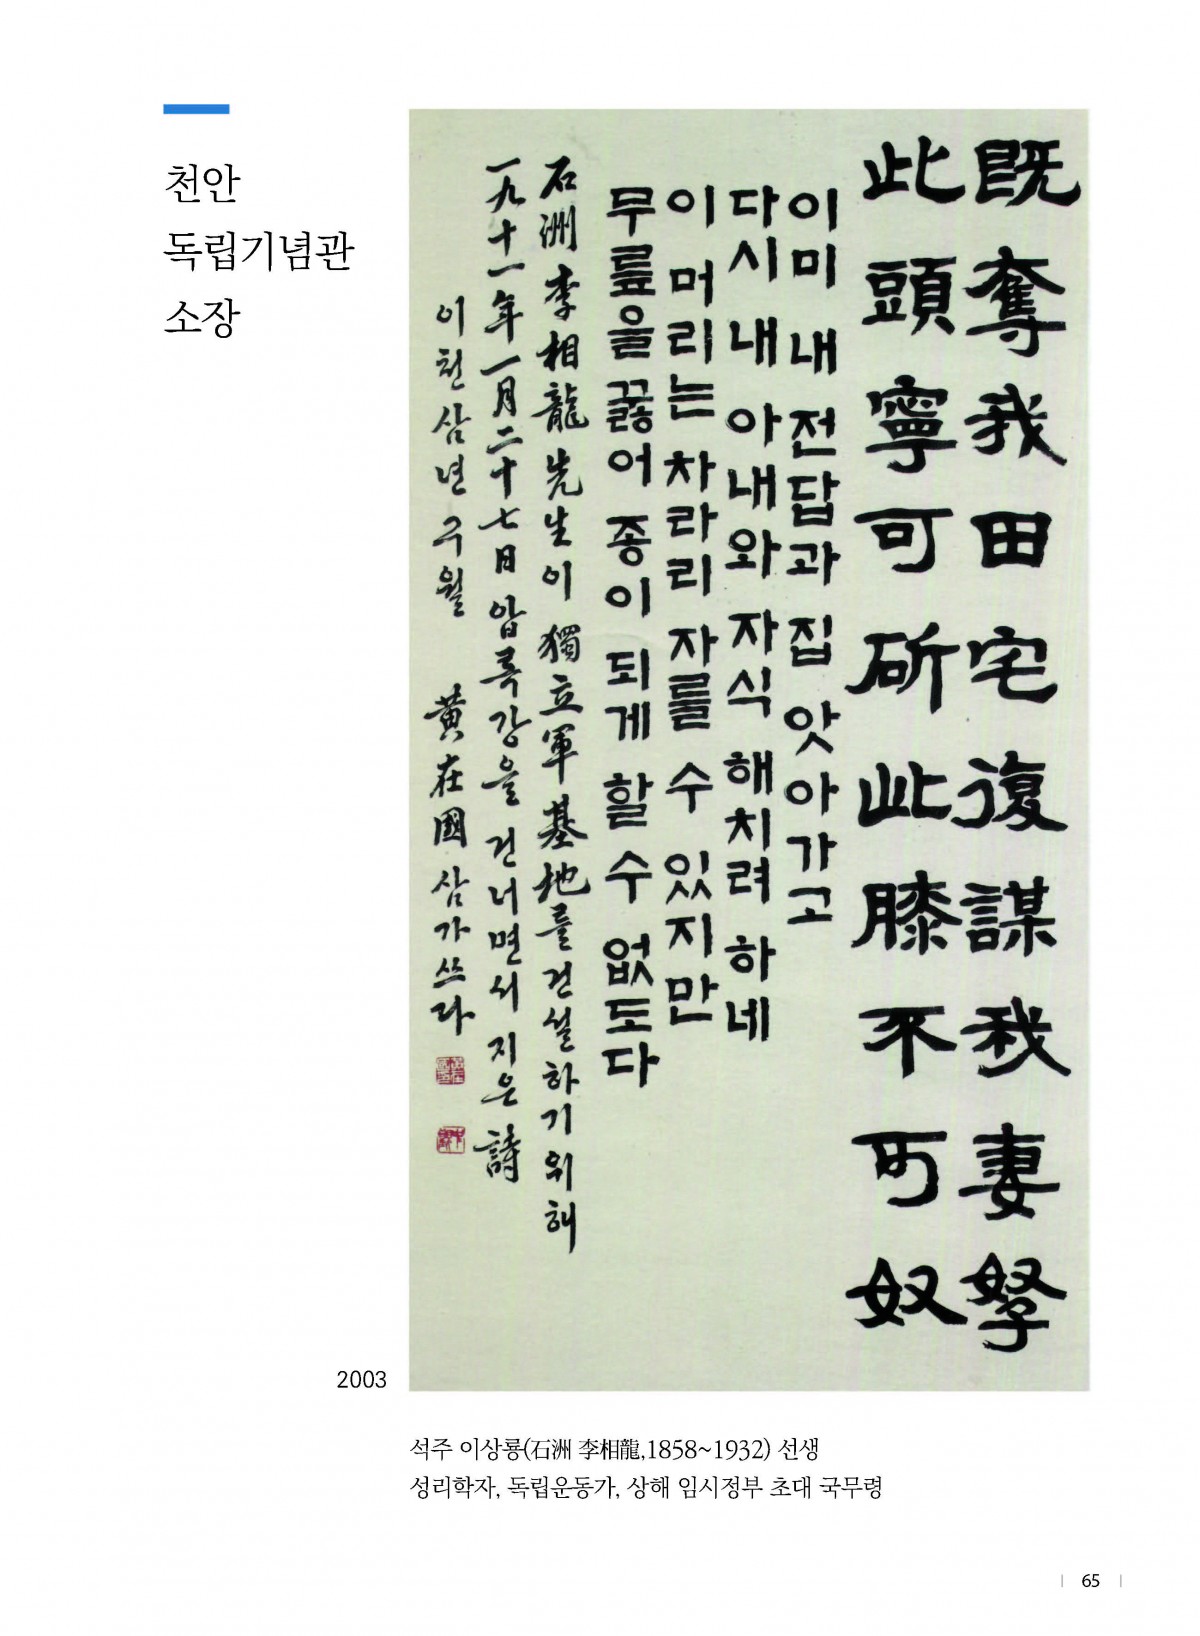 천안
독립기념관
소장
既奪我田宅復謀我妻孥
此頭寧可斫此膝不可奴
이미 내 전답과 집 앗아가고
다시 내 아내와 자식 해치려 하네
이 머리는 차라리 자를 수 있지만
무릎을 꿇어 종이 되게 할 수 없도다
石洲 李相龍 先生이 獨立軍 基地를 건설하기 위해
一九十一年 一月二十七日 압록강을 건너면서 지은 詩
이천삼년 구월 黃在國 삼가쓰다
2003
석주 이상룡(石洲 李相龍,1858~1932) 선생
성리학자, 독립운동가, 상해 임시정부 초대 국무령
65